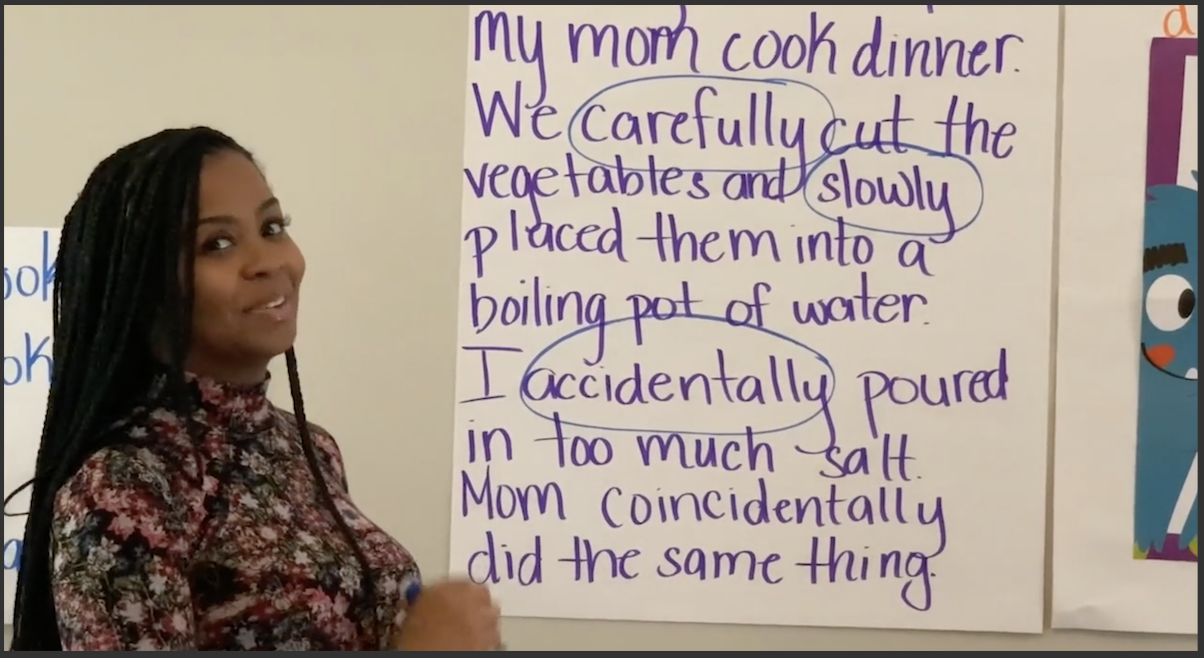 my mom cook dinner.
We carefully cut the
vegetables and slowly
placed them into a
boiling pot of water.
I accidentally poured
in too much salt.
Mom coincidentally
did the same thing.